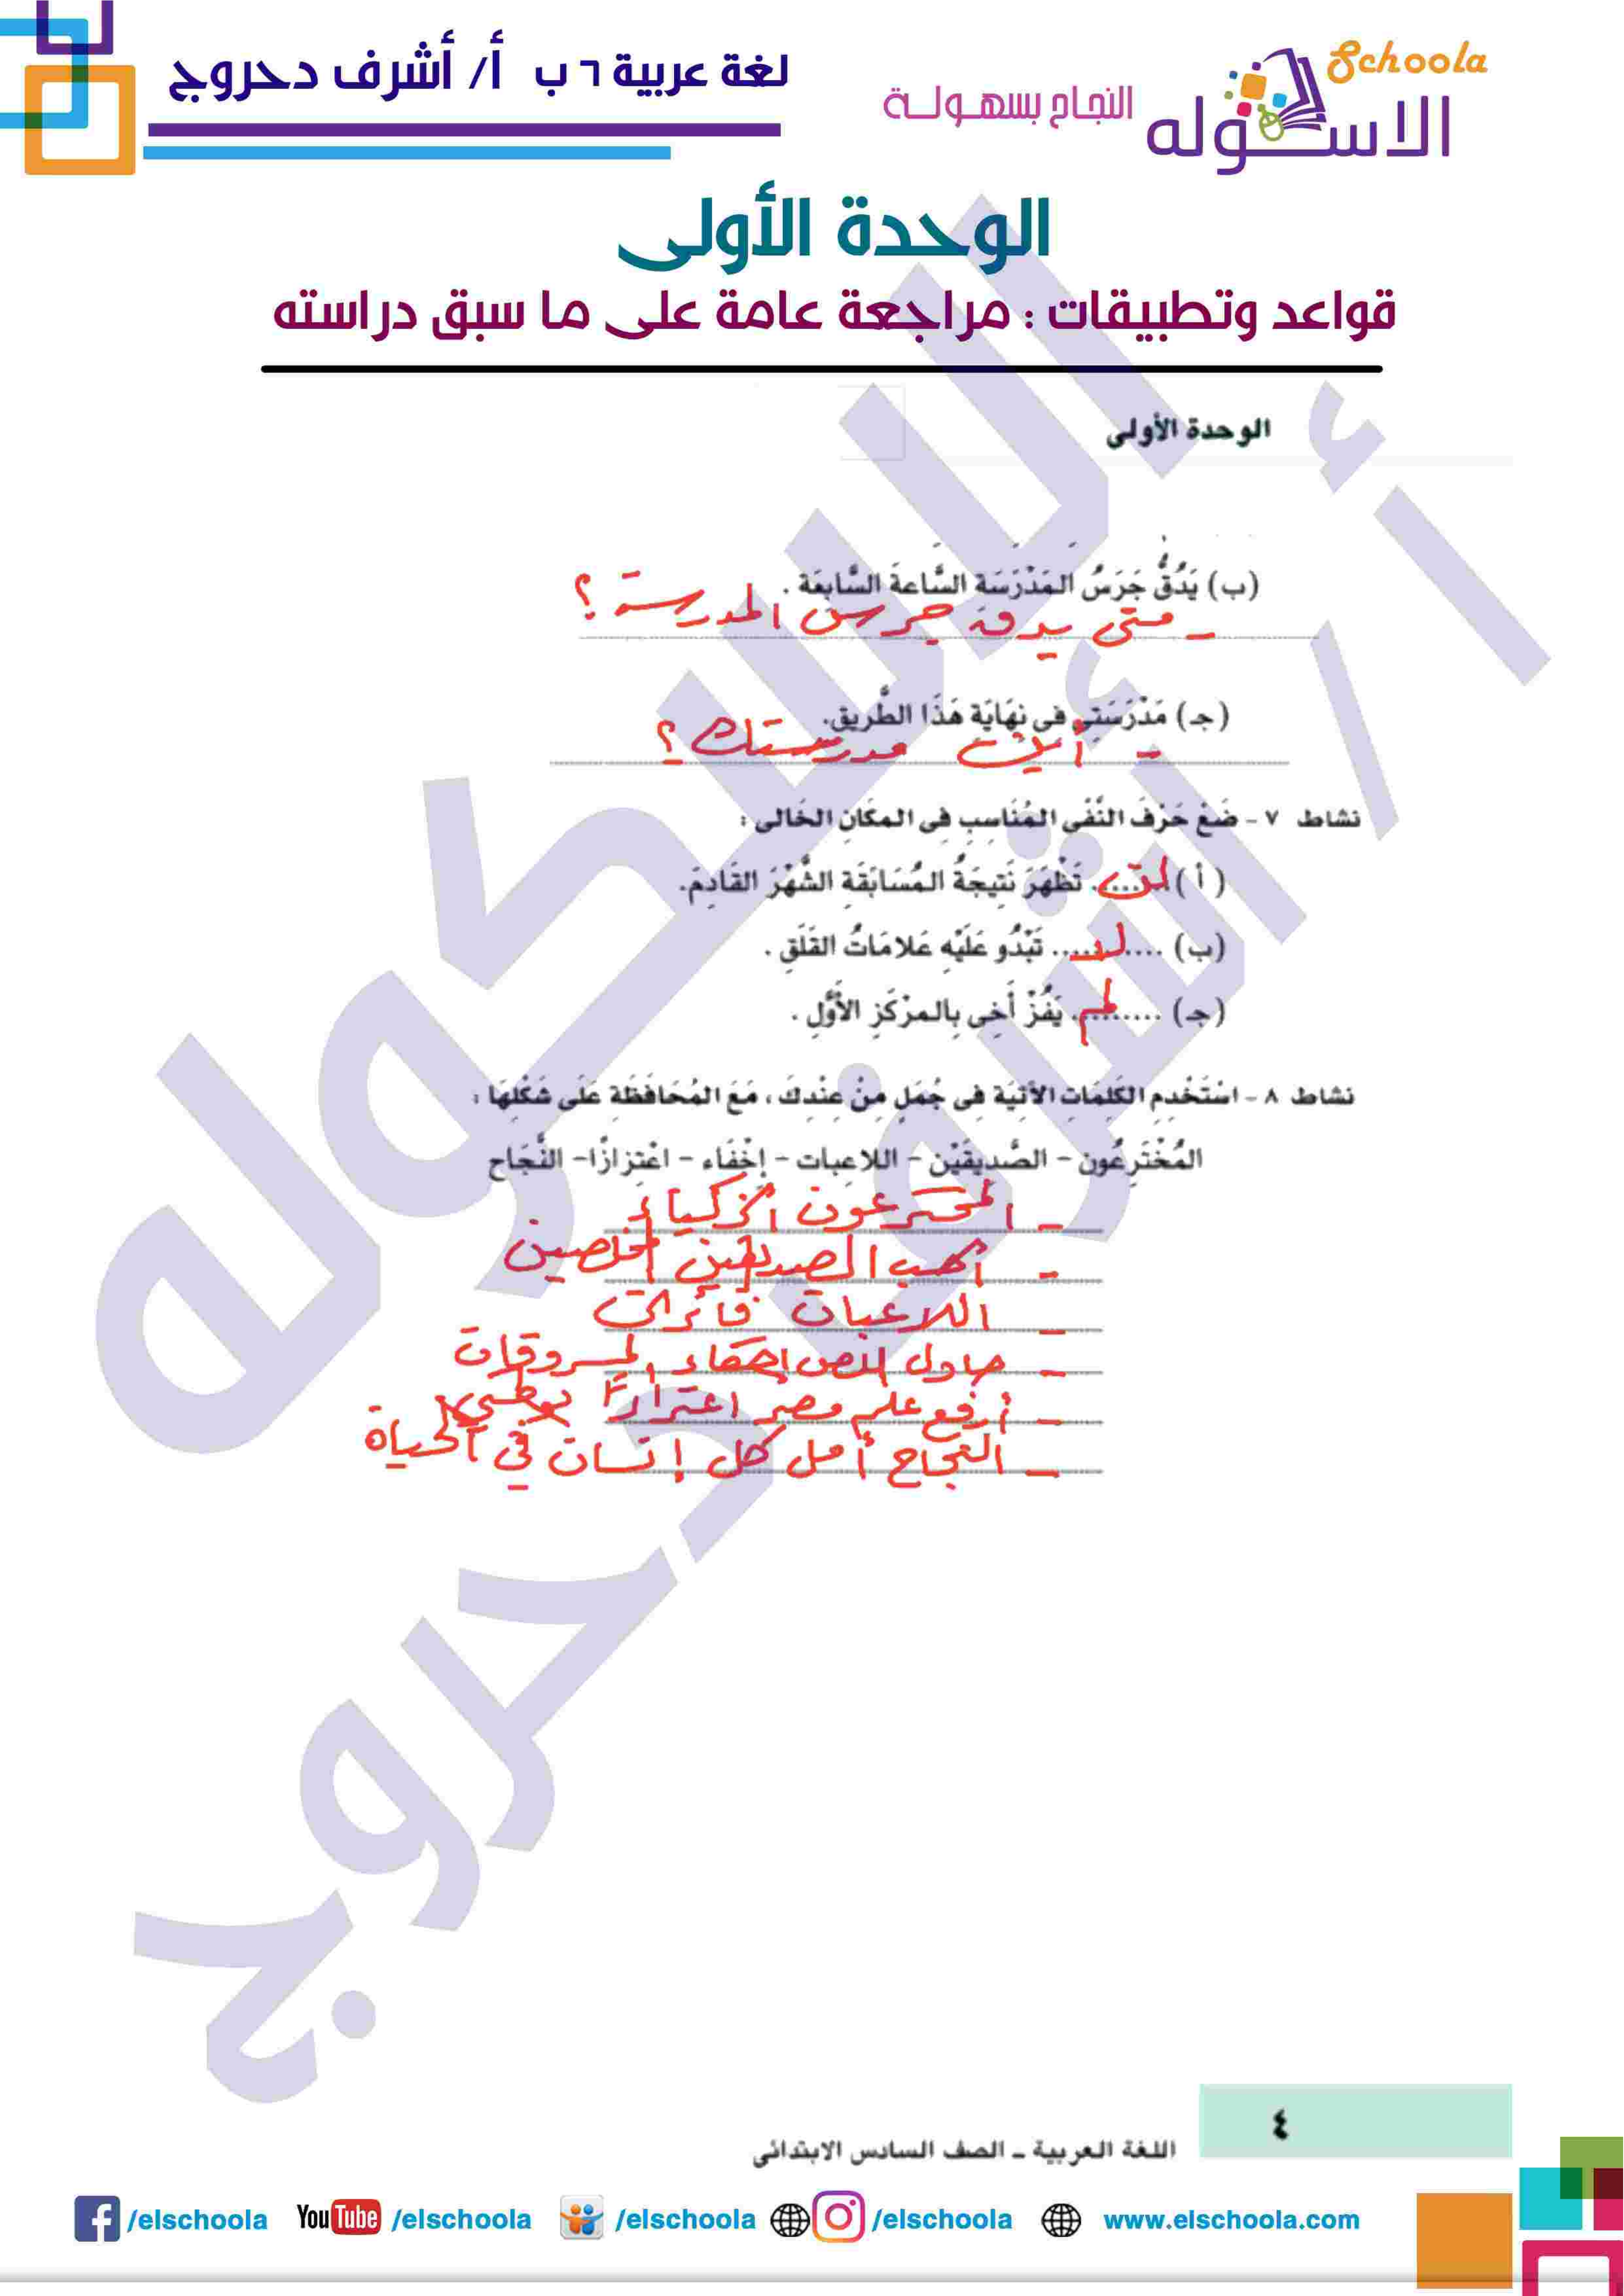 لغة عربية ٦ ب أ/ أشرف دحروج
Schoola
الاسكوله
النجاح بسهولة
الوحدة الأولى
قواعد وتطبيقات : مراجعة عامة على ما سبق دراسته
الوحدة الأولى
(ب) يَدُقُّ جَرَسُ المَدْرَسَةِ السَّاعةَ السَّابِعَةَ .
- متى يدق جرس المدرسة ؟
(جـ) مَدْرَسَتِى فى نِهَايَةِ هَذَا الطَّرِيقِ.
- أين مدرستك ؟
نشاط ٧ - ضَعْ حَرْفَ النَّفْى المُنَاسِبِ فِى المكَانِ الخَالى :
( أ ) لن تَظْهَرَ نَتِيجَةُ المُسَابَقَةِ الشَّهْرَ القَادِمَ.
(ب) ..... لا ..... تَبْدُو عَلَيْهِ عَلامَاتُ القَلَقِ .
(جـ) ..... لم ..... يَفُزْ أَخِى بِالمرْكَزِ الأَوَّلِ .
نشاط ٨ - اسْتَخْدِمِ الكَلِمَاتِ الآتِيَةَ فِى جُمَلٍ مِنْ عِنْدِكَ ، مَعَ المُحَافَظَةِ عَلَى شَكْلِهَا :
المُخْتَرِعُون - الصَّدِيقَيْن - اللاعِبات - إخْفَاء - اعْتِزازًا - النَّجَاح
- المخترعون أذكياء
- أحب الصديقين المخلصين
- اللاعبات فائزات
- حاول اللص إخفاء المسروقات
- أرفع علم مصر اعتزازًا بوطني
- النجاح أمل كل إنسان في الحياة
٤
اللغة العربية - الصف السادس الابتدائى
/elschoola YouTube /elschoola /elschoola /elschoola www.elschoola.com
الاسكوله
أ / أشرف دحروج